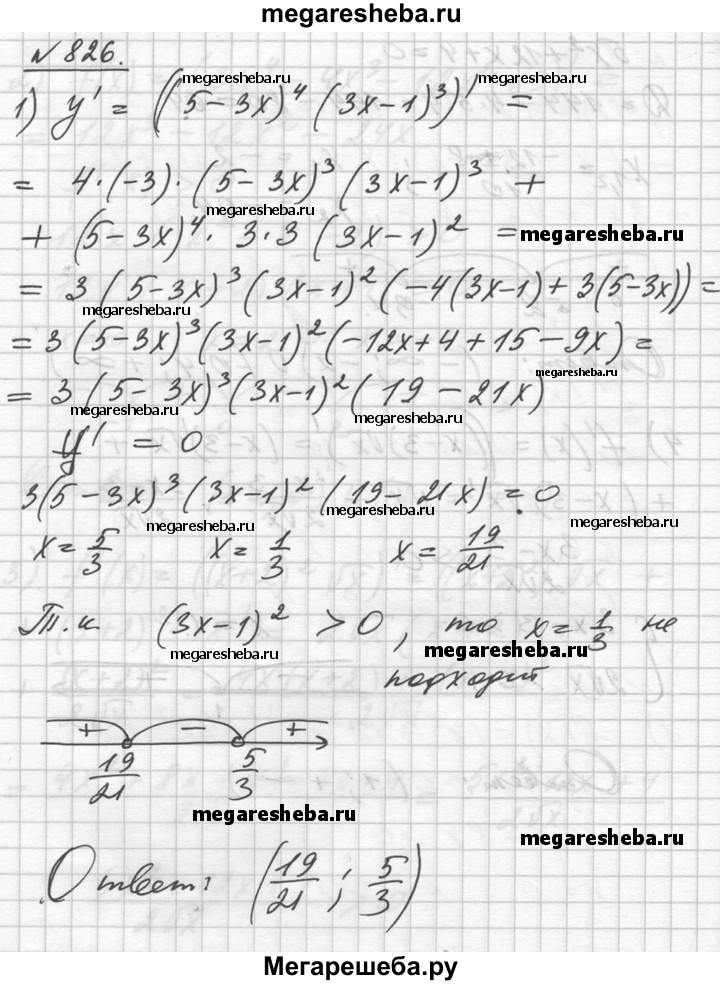 megaresheba.ru
№ 826.
megaresheba.ru megaresheba.ru
1) y' = ((5-3x)^4 (3x-1)^3)' =
= 4·(-3)·(5-3x)^3 (3x-1)^3 +
megaresheba.ru
+ (5-3x)^4 · 3·3 (3x-1)^2 = megaresheba.ru
= 3(5-3x)^3 (3x-1)^2 (-4(3x-1)+3(5-3x)) =
megaresheba.ru
= 3(5-3x)^3 (3x-1)^2 (-12x+4+15-9x) =
megaresheba.ru
= 3(5-3x)^3 (3x-1)^2 (19-21x)
megaresheba.ru megaresheba.ru
y' = 0
3(5-3x)^3 (3x-1)^2 (19-21x) = 0
megaresheba.ru megaresheba.ru megaresheba.ru
x = 5/3 x = 1/3 x = 19/21
Т.к (3x-1)^2 > 0, то x = 1/3 не
megaresheba.ru megaresheba.ru
подходит
+ - +
19/21 5/3
megaresheba.ru
megaresheba.ru
Ответ: (19/21 ; 5/3)
Мегарешеба.ру